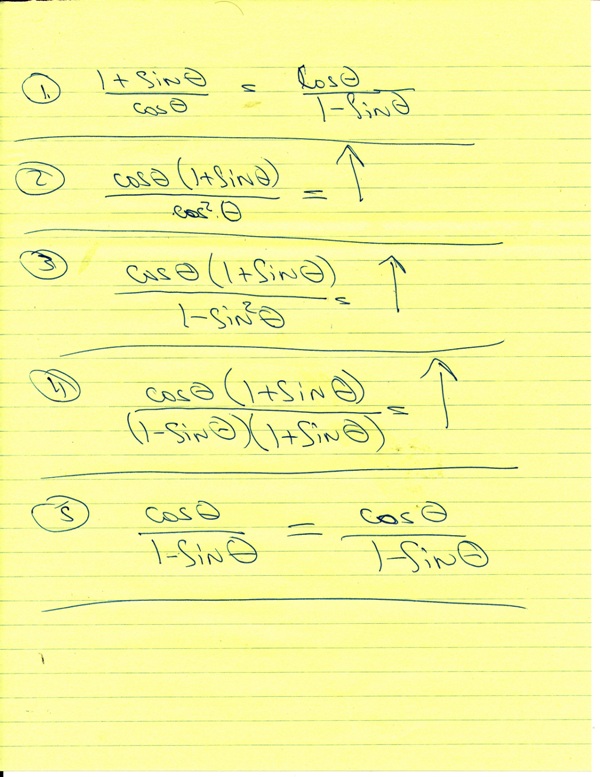 ① (1+sinθ)/cosθ = cosθ/(1-sinθ)
② cosθ(1+sinθ)/cos²θ = ↑
③ cosθ(1+sinθ)/(1-sin²θ) = ↑
④ cosθ(1+sinθ)/((1-sinθ)(1+sinθ)) = ↑
⑤ cosθ/(1-sinθ) = cosθ/(1-sinθ)